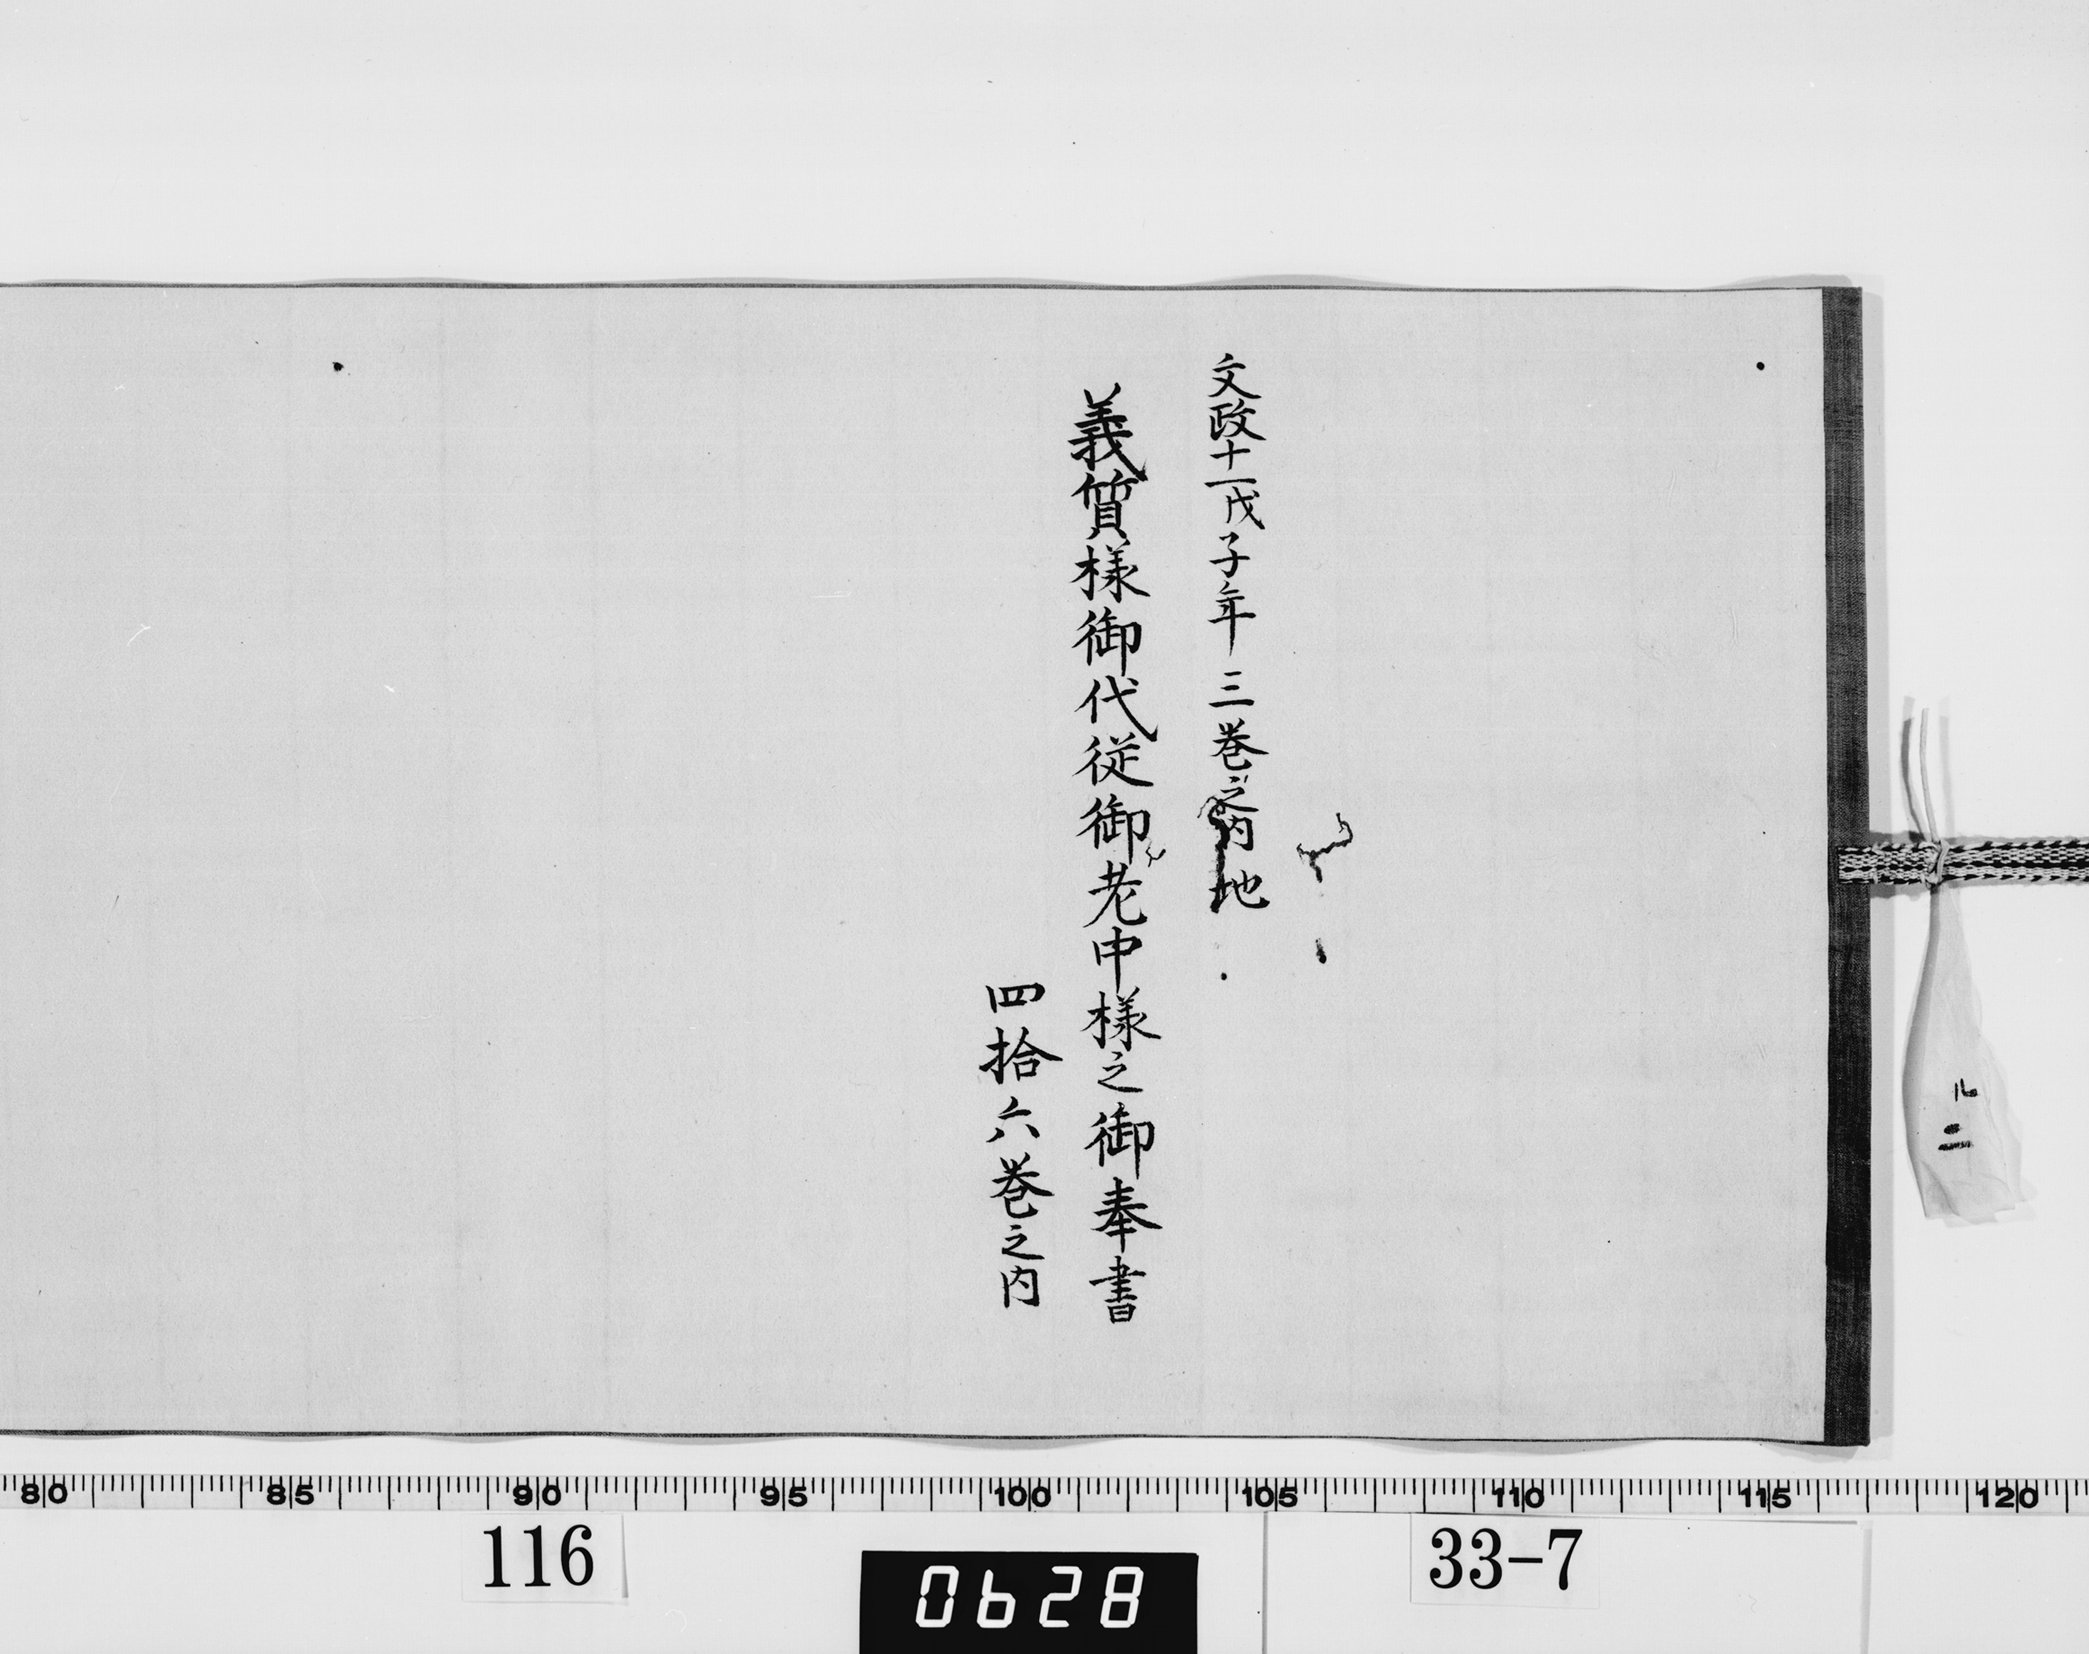 文政十一戊子年 三巻之内 地
義質様御代従御老中様之御奉書
四拾六巻之内
ル
二
80 85 90 95 100 105 110 115 120
116
0628
33-7